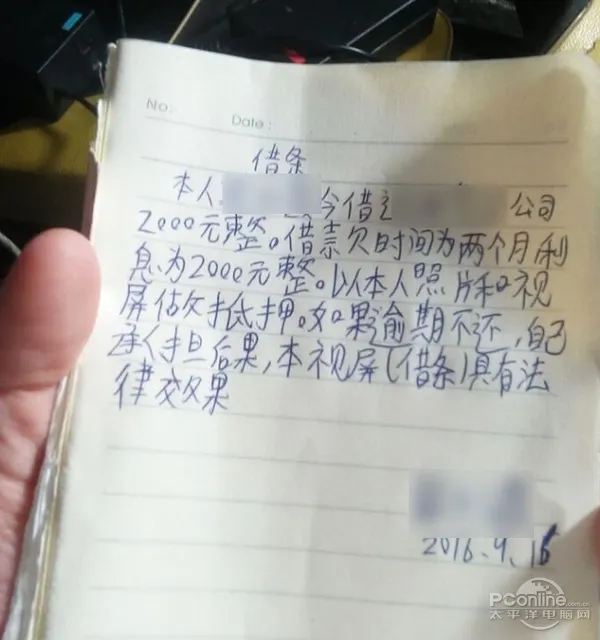 No:
Date:
借条
本人 今借 公司
2000元整。借款时间为两个月利
息为2000元整。以本人照片和视
屏做抵押。如果逾期不还,自己
承担后果,本视屏(借条)具有法
律效果
2016.9.16
PConline.com.cn
太平洋电脑网